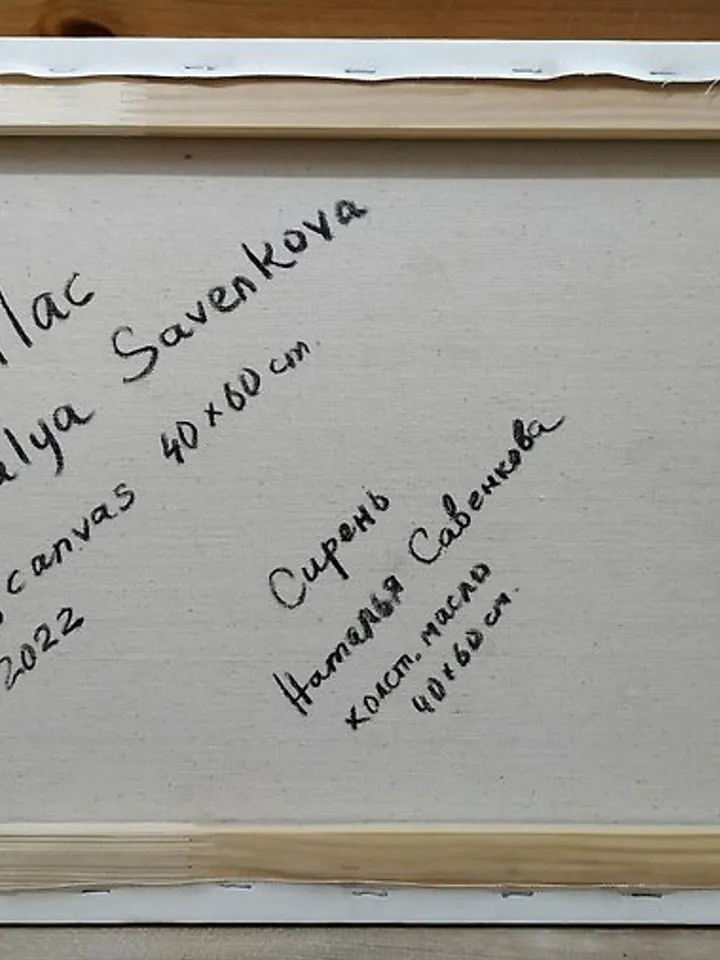 lac
alya Savenkova
canvas 40×60 cm.
2022
Сирень
Наталья Савенкова
холст. масло
40×60 см.